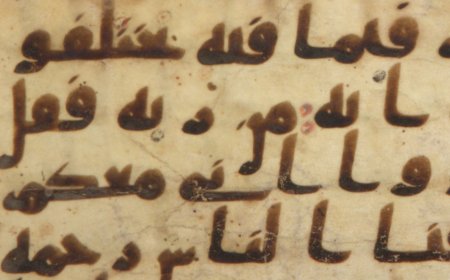 فيما فيه يختلفو
ايه من ربه فقل
وا انى معكم
قنا الناس رحمه